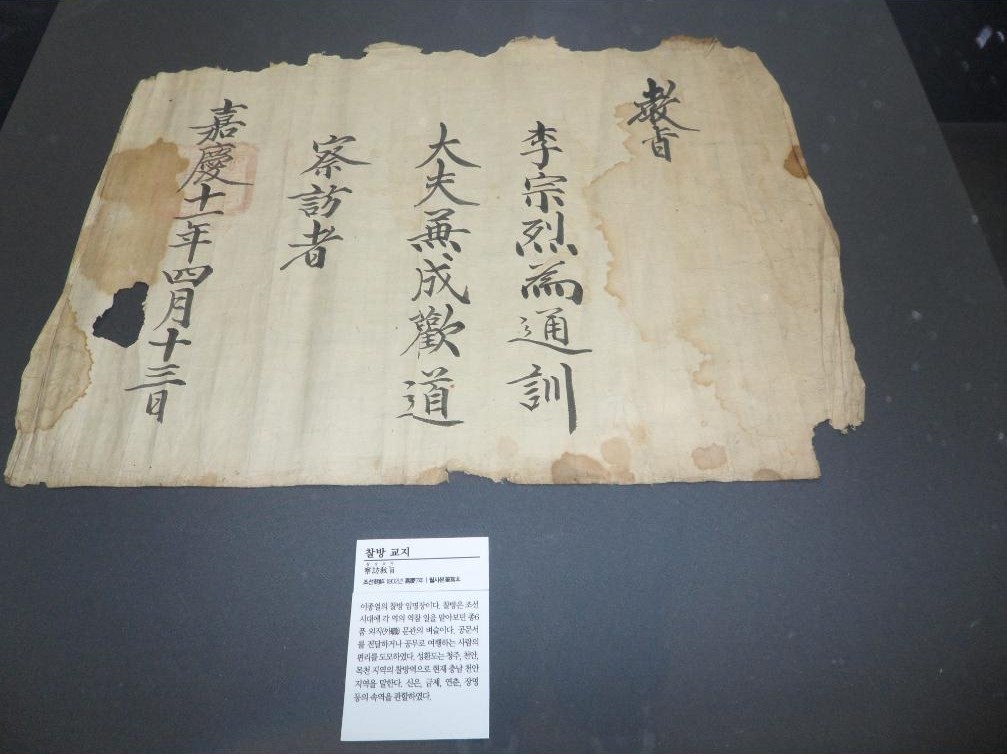 敎旨
李宗烈為通訓
大夫兼成歡道
察訪者
嘉慶十一年四月十三日
찰방 교지
찰방교지
察訪敎旨
조선朝鮮 1802년 嘉慶7年
이종열의 찰방 임명장이다. 찰방은 조선
시대에 각 역의 역참 일을 맡아보던 종6
품 외직(外職) 문관의 벼슬이다. 공문서
를 전달하거나 공무로 여행하는 사람의
편리를 도모하였다. 성환도는 청주, 천안,
목천 지역의 찰방역으로 현재 충남 천안
지역을 말한다. 신은, 금제, 연춘, 장명
등의 속역을 관할하였다.